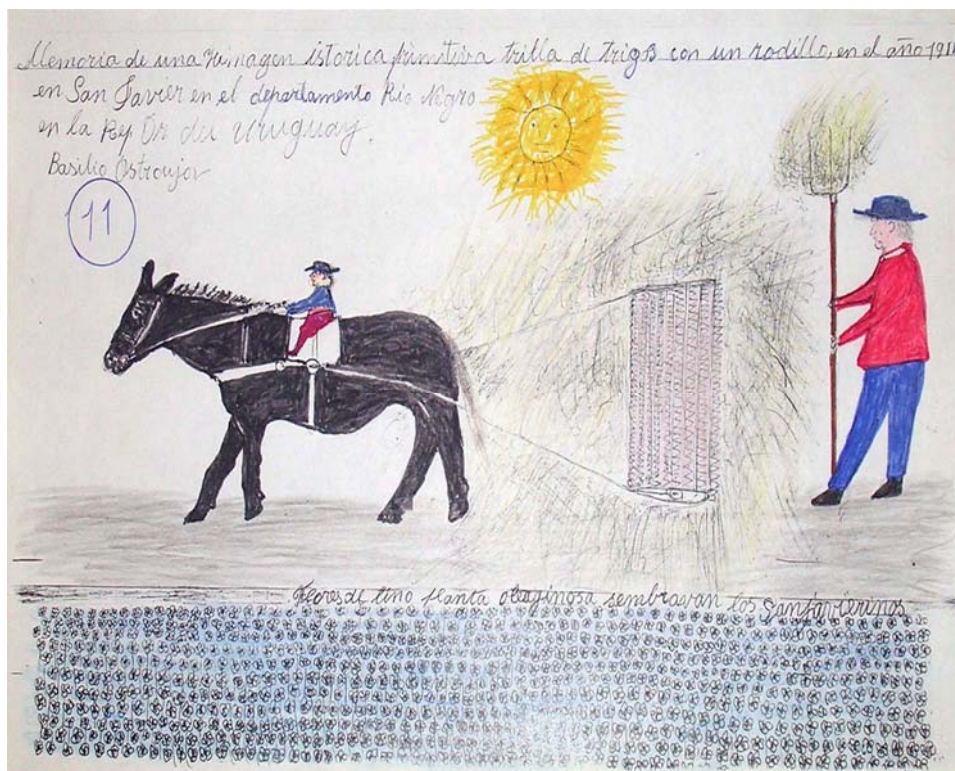 Memoria de una Himagen istorica primitiva trilla de trigo con un rodillo, en el año 191
en San Javier en el departamento Rio Negro
en la Rep Or del Uruguay.
Basilio Ostroujov
11
flores de lino planta oleaginosa sembravan los Sanjavierinos